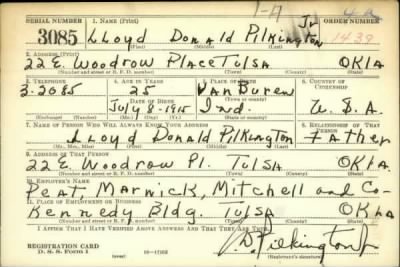 1-A
SERIAL NUMBER 1. NAME (Print) ORDER NUMBER
3085 LLoyd Donald Pilkington Jr 1439
(First) (Middle) (Last)
2. ADDRESS (Print)
22 E. Woodrow Place Tulsa Okla
(Number and street or R. F. D. number) (Town) (County) (State)
3. TELEPHONE 4. AGE IN YEARS 5. PLACE OF BIRTH 6. COUNTRY OF CITIZENSHIP
3-2085 25 Van Buren
DATE OF BIRTH (Town or county)
July 8-1915 Ind. U.S.A.
(Mo.) (Day) (Yr.) (State or country)
7. NAME OF PERSON WHO WILL ALWAYS KNOW YOUR ADDRESS 8. RELATIONSHIP OF THAT PERSON
LLoyd Donald Pilkington Father
(Mr., Mrs., Miss) (First) (Middle) (Last)
9. ADDRESS OF THAT PERSON
22 E. Woodrow Pl. Tulsa Okla.
(Number and street or R. F. D. number) (Town) (County) (State)
10. EMPLOYER'S NAME
Peat, Marnick, Mitchell and Co-
11. PLACE OF EMPLOYMENT OR BUSINESS
Kennedy Bldg. Tulsa Okla
(Number and street or R. F. D. number) (Town) (County) (State)
I AFFIRM THAT I HAVE VERIFIED ABOVE ANSWERS AND THAT THEY ARE TRUE.
REGISTRATION CARD
D. S. S. Form 1
D. Pilkington Jr
(Registrant's signature)